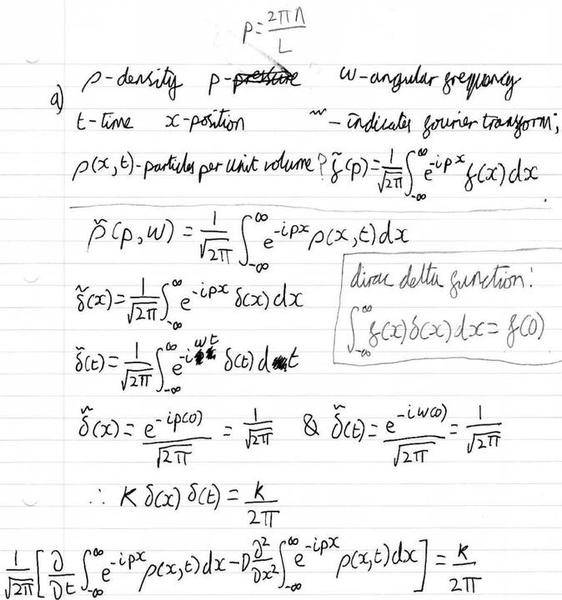 p = 2πn/L
a) ρ-density p-pressure ω-angular frequency
t-time x-position ~ - indicates fourier transform;
ρ(x,t)-particles per unit volume? f̃(p) = 1/√2π ∫_{-∞}^{∞} e^{-ipx} f(x) dx
ρ̃(p,ω) = 1/√2π ∫_{-∞}^{∞} e^{-ipx} ρ(x,t) dx
dirac delta function:
∫_{-∞}^{∞} f(x) δ(x) dx = f(0)
δ̃(x) = 1/√2π ∫_{-∞}^{∞} e^{-ipx} δ(x) dx
δ̃(t) = 1/√2π ∫_{-∞}^{∞} e^{-iωt} δ(t) dt
δ̃(x) = e^{-ip(0)}/√2π = 1/√2π & δ̃(t) = e^{-iω(0)}/√2π = 1/√2π
∴ K δ(x) δ(t) = K/2π
1/√2π [∂/∂t ∫_{-∞}^{∞} e^{-ipx} ρ(x,t) dx - D ∂²/∂x² ∫_{-∞}^{∞} e^{-ipx} ρ(x,t) dx] = K/2π